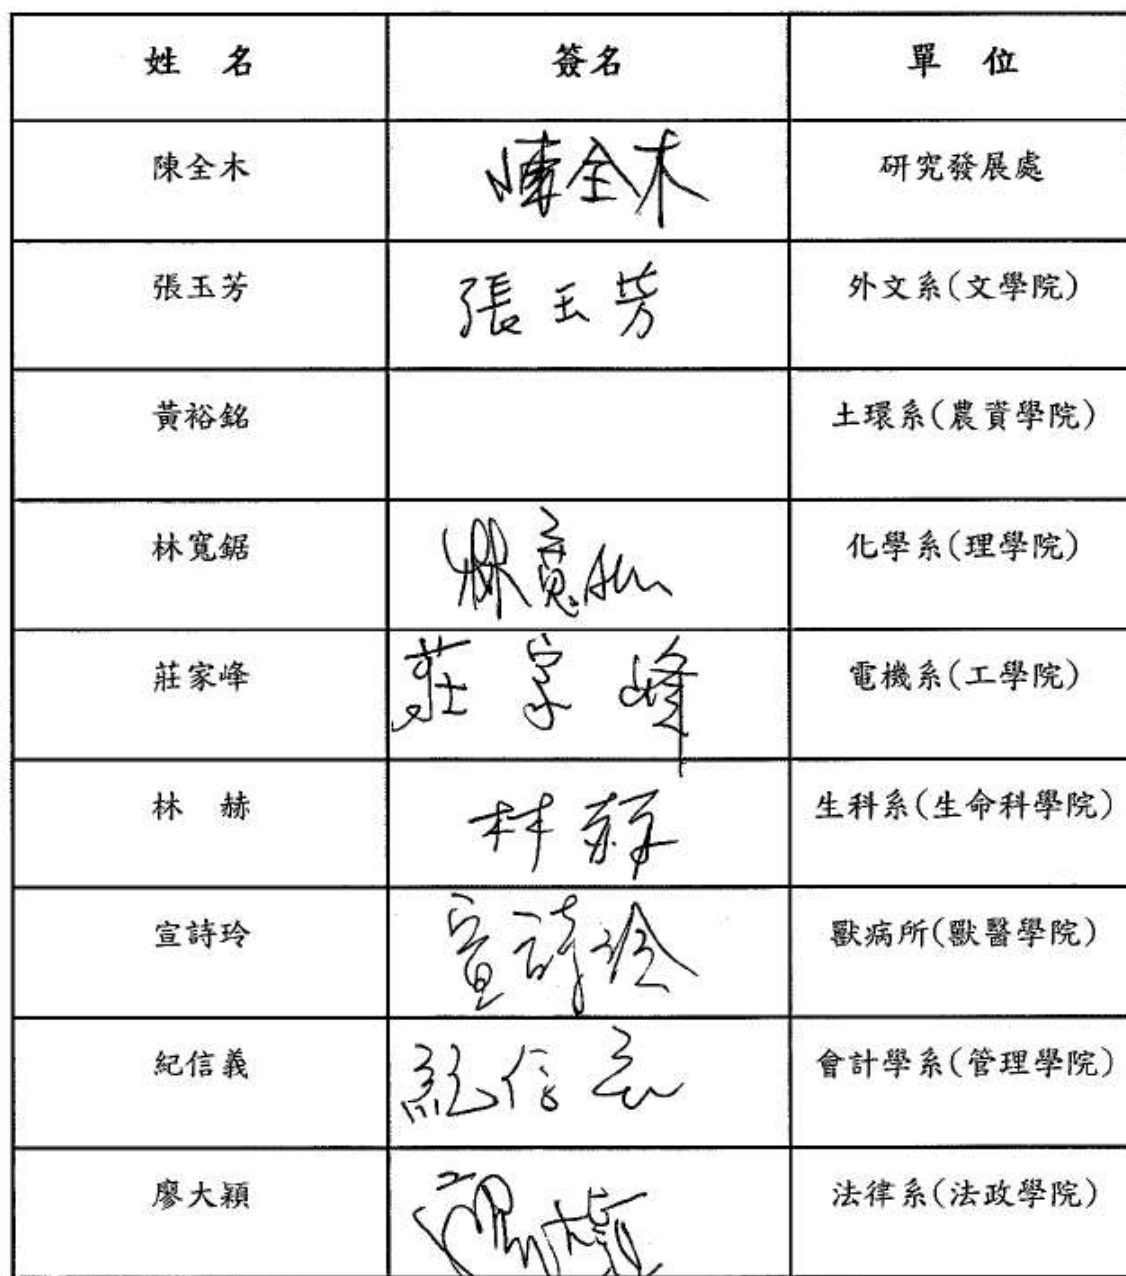 姓 名 簽名 單 位
陳全木 陳全木 研究發展處
張玉芳 張玉芳 外文系(文學院)
黃裕銘 土環系(農資學院)
林寬鋸 林寬鋸 化學系(理學院)
莊家峰 莊家峰 電機系(工學院)
林 赫 林赫 生科系(生命科學院)
宣詩玲 宣詩玲 獸病所(獸醫學院)
紀信義 紀信義 會計學系(管理學院)
廖大穎 廖大穎 法律系(法政學院)